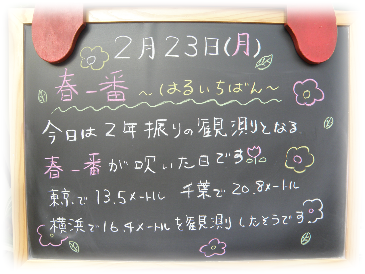 2月23日(月)
春一番 ~はるいちばん~
今日は2年振りの観測となる
春一番が吹いた日です
東京で13.5メートル 千葉で20.8メートル
横浜で16.4メートルを観測したそうです